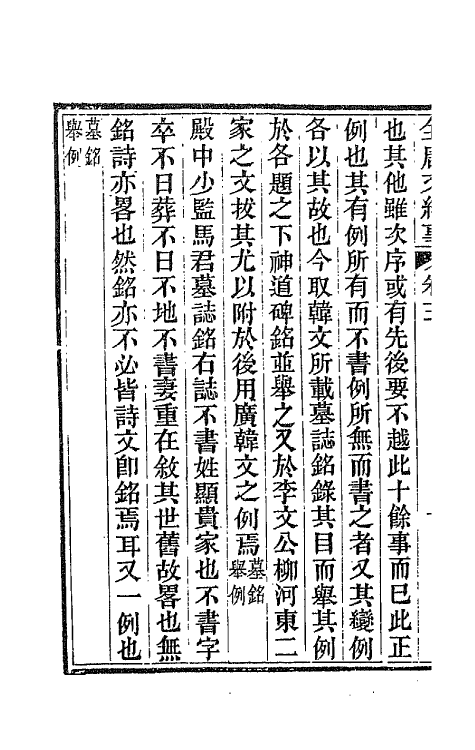 全唐文紀事 卷三
也其他雖次序或有先後要不越此十餘事而已此正
例也其有例所有而不書例所無而書之者又其變例
各以其故也今取韓文所載墓誌銘錄其目而舉其例
於各題之下神道碑銘並舉之又於李文公柳河東二
家之文拔其尤以附於後用廣韓文之例焉墓銘舉例
殿中少監馬君墓誌銘右誌不書姓顯貴家也不書字
卒不日葬不日不地不書妻重在敘其世舊故畧也無
銘詩亦畧也然銘亦不必皆詩文卽銘焉耳又一例也
墓銘舉例